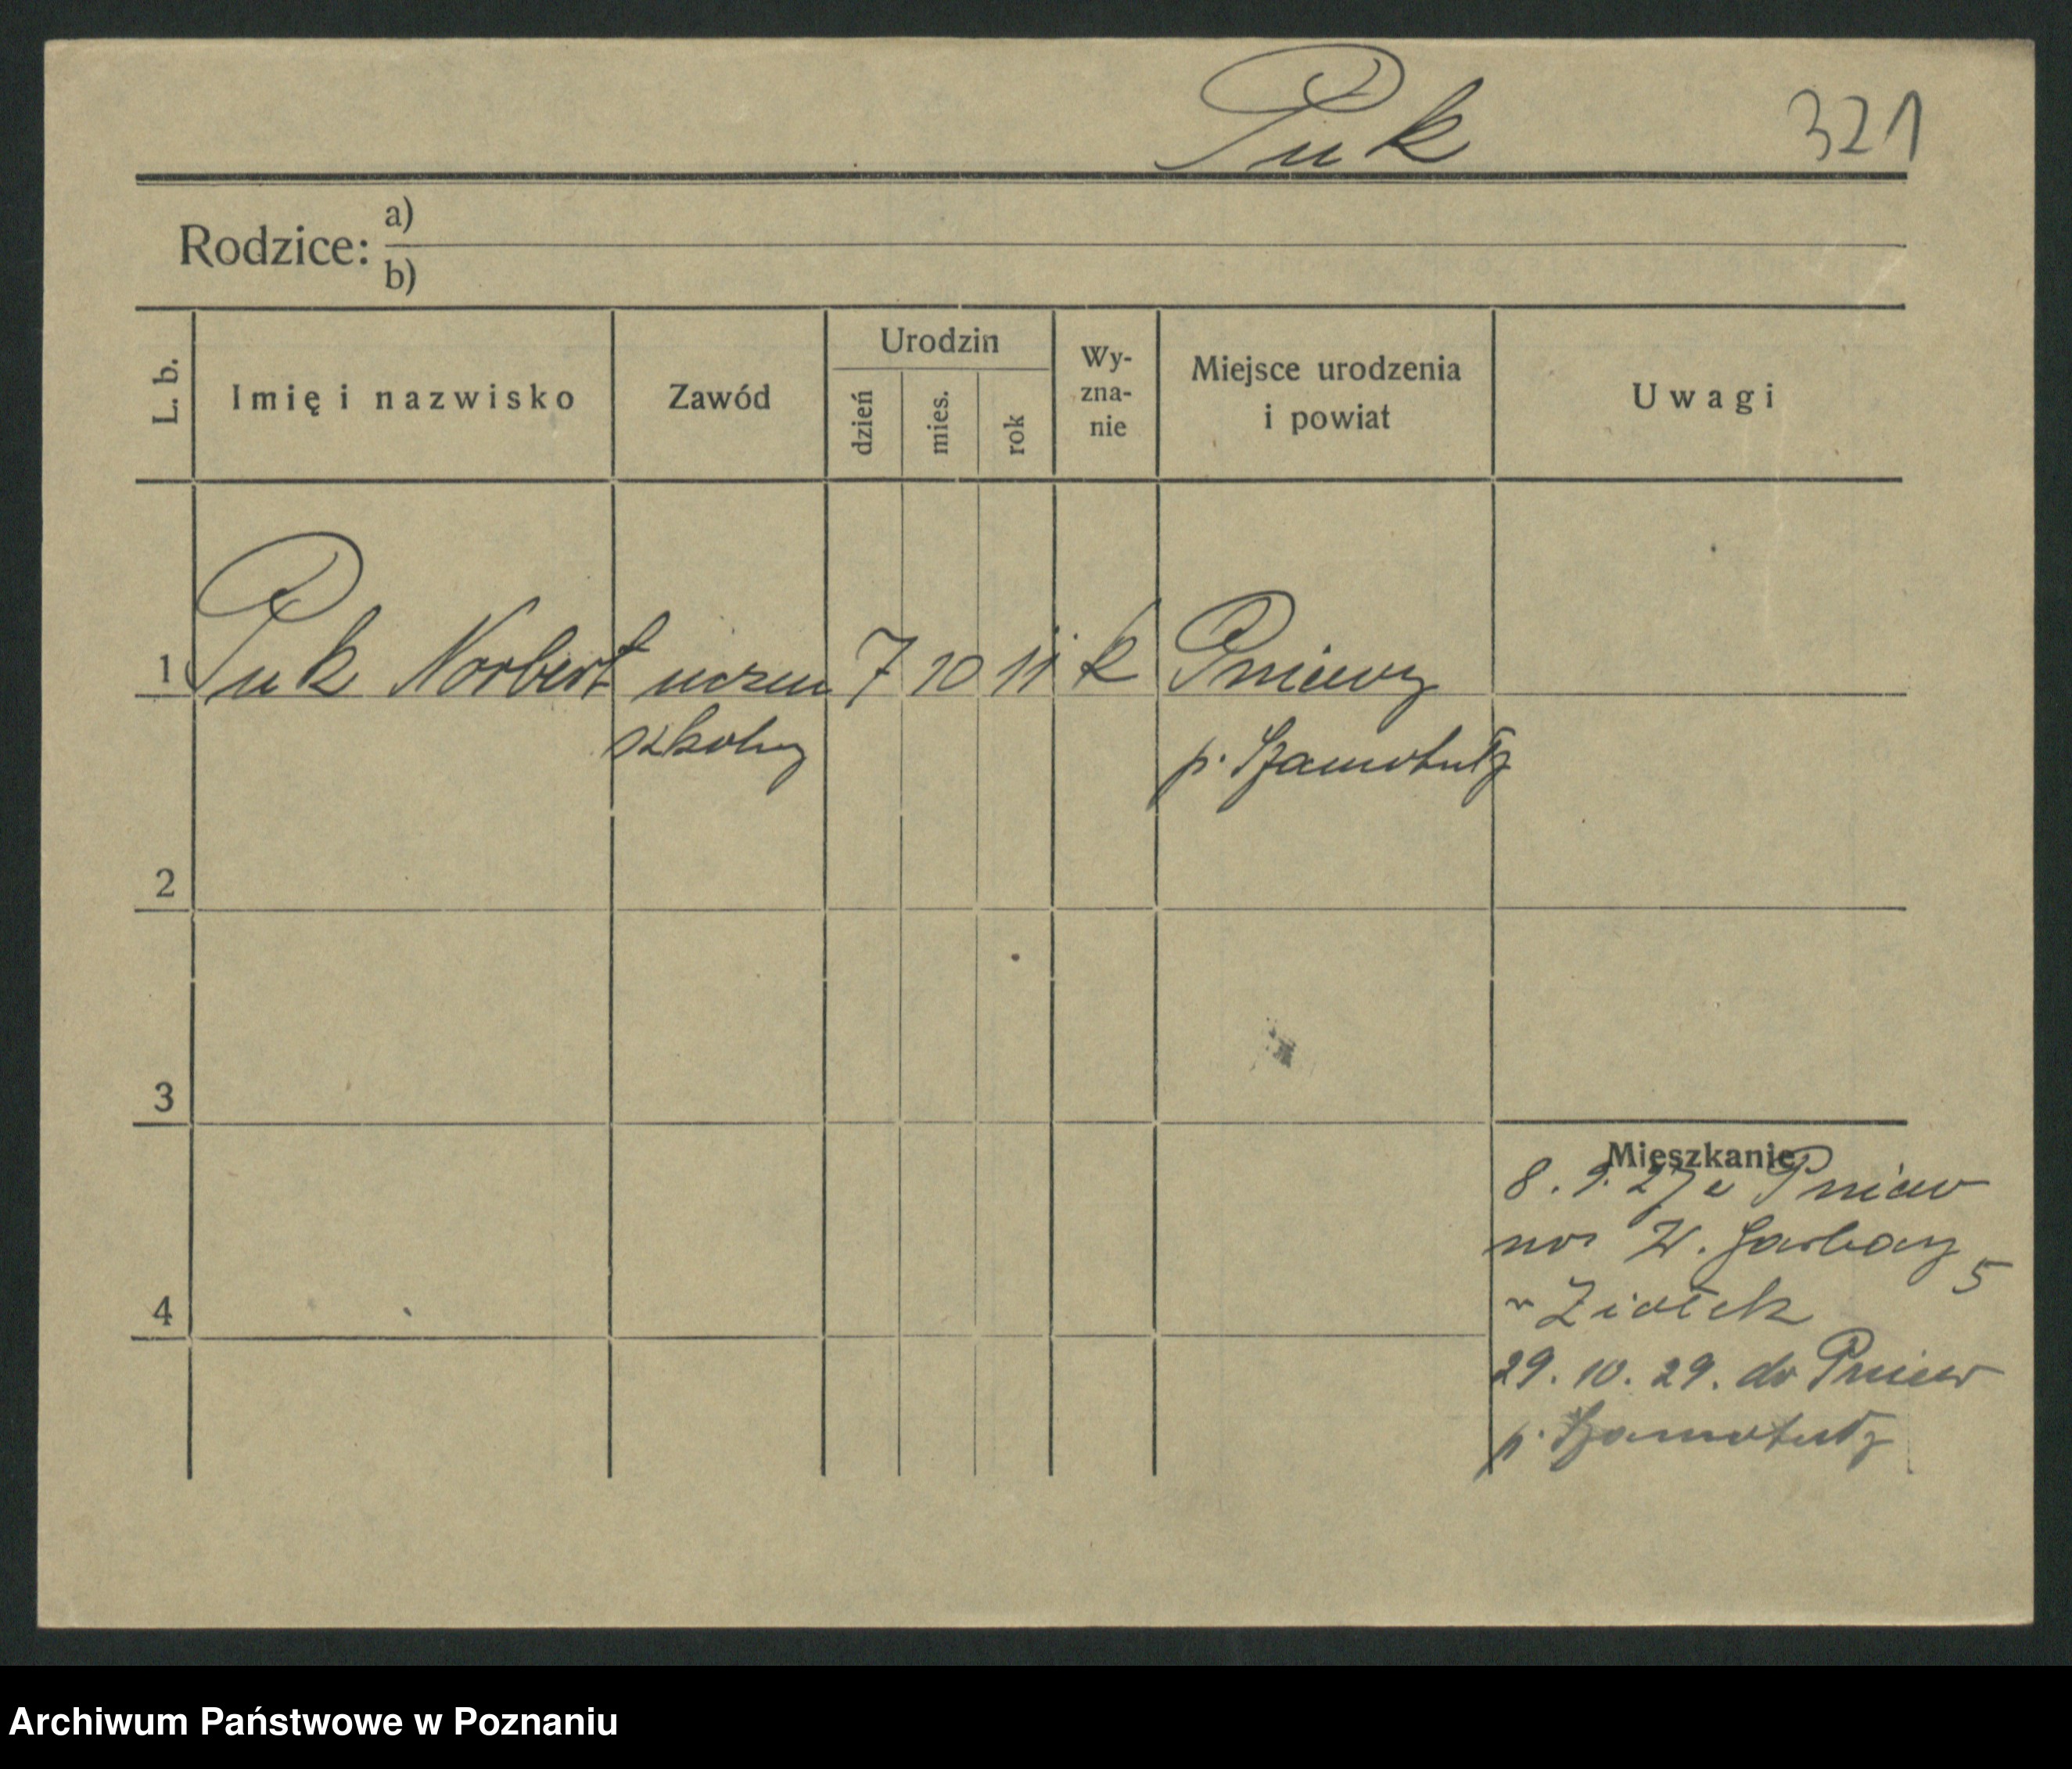 Puk 321
Rodzice: a)
b)
L. b. Imię i nazwisko Zawód Urodzin dzień mies. rok Wy-zna-nie Miejsce urodzenia i powiat Uwagi
1 Puk Norbert uczeń 7 10 11 k Pniewy
szkolny p. Szamotuły
2
3
Mieszkanie
8. 9. 27 z Pniew
W. Garbary 5
Ziołek
4
29. 10. 29. do Pniew
p. Szamotuły
Archiwum Państwowe w Poznaniu